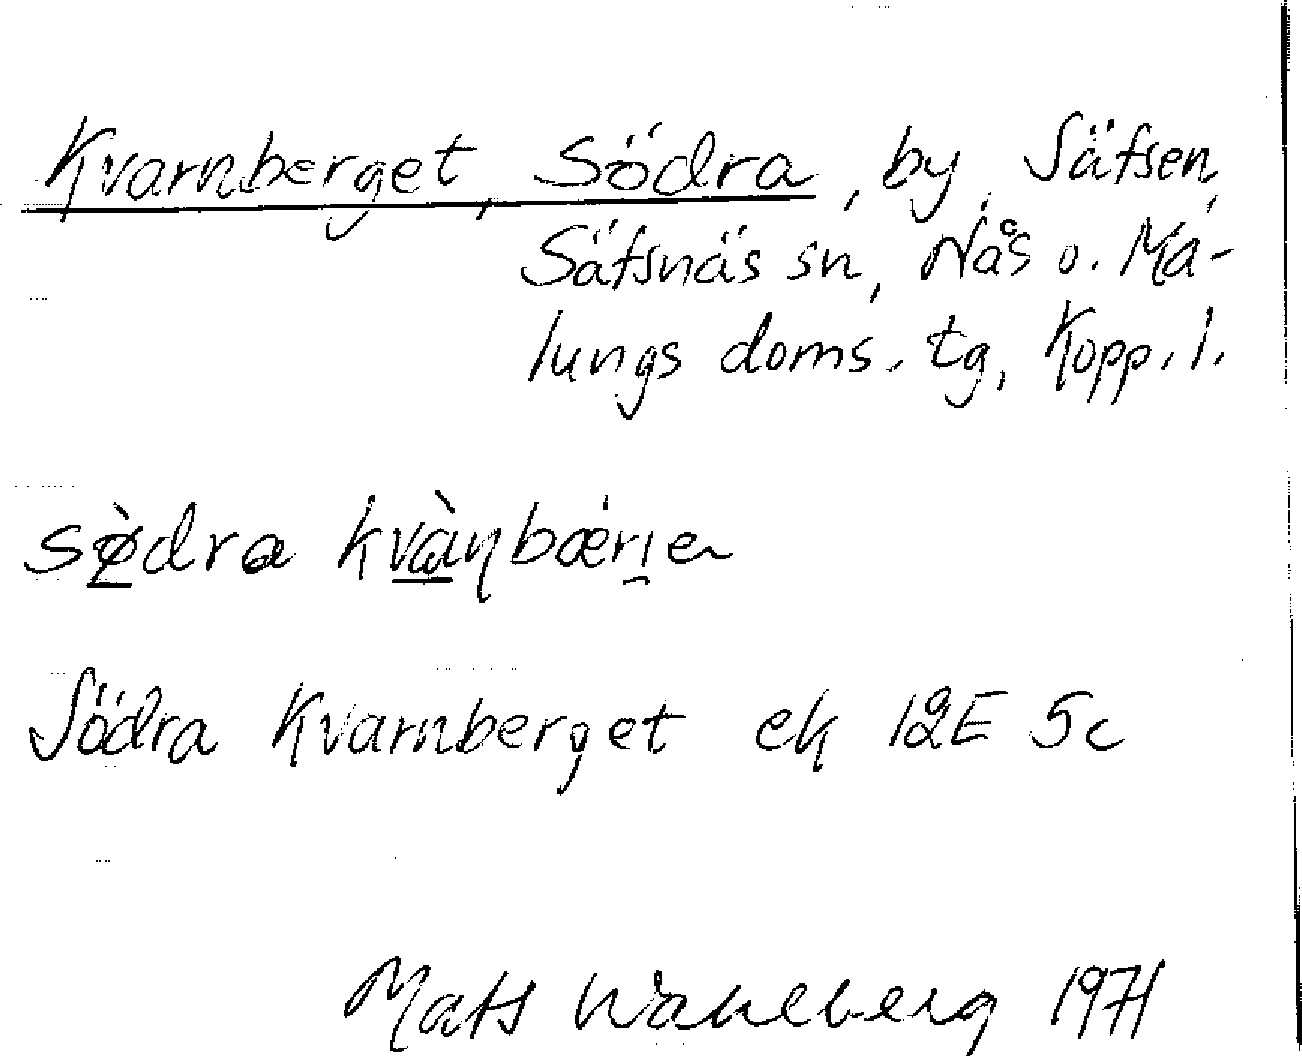 Kvarnberget, Södra, by, Säfsen,
Säfsnäs sn, Nås o. Ma-
lungs doms. tg, Kopp. l.
sø̀dra kvàɳbærien
Södra Kvarnberget ek 12E 5c
Mats Wahlberg 1971